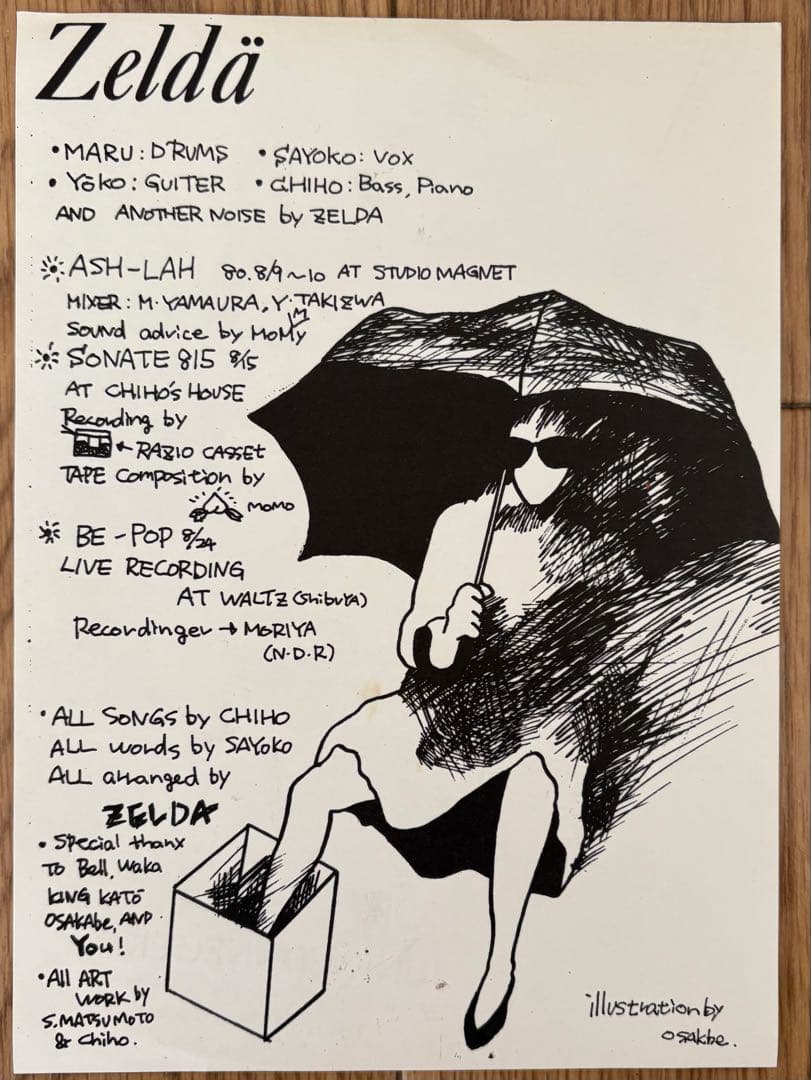 Zeldä
• MARU : DRUMS • SAYOKO : VOX
• YŌKO : GUITER • CHIHO : Bass, Piano
AND ANOTHER NOISE by ZELDA
ASH-LAH 80. 8/9~10 AT STUDIO MAGNET
MIXER : M. YAMAURA, Y. TAKIZWA
Sound advice by MOMy
SONATE 815 8/15
AT CHIHO'S HOUSE
Recording by
← RAZIO CASSET
TAPE composition by
MOMO
BE-POP 8/24
LIVE RECORDING
AT WALTZ (ShibuYA)
Recordinger → MORIYA
(N.D.R)
• ALL SONGS by CHIHO
ALL words by SAYOKO
ALL arranged by
ZELDA
• Special thanx
TO Bell, Waka
KING KATŌ
OSAKAbe, AND
You!
• All ART
WORK by
S. MATSUMOTO
& Chiho.
illustration by
osakbe.